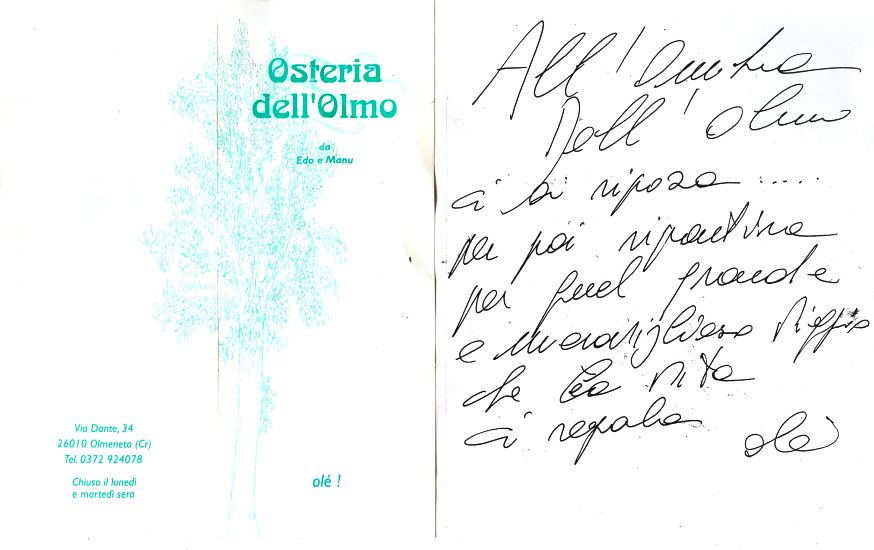 Osteria
dell'Olmo
da
Edo e Manu
Via Dante, 34
26010 Olmeneta (Cr)
Tel. 0372 924078
Chiuso il lunedì
e martedì sera
olé !
All'Ombra
Dell'olmo
ci si riposa .....
per poi ripartire
per quel grande
e meraviglioso Viaggio
che la Vita
ci regala
olè